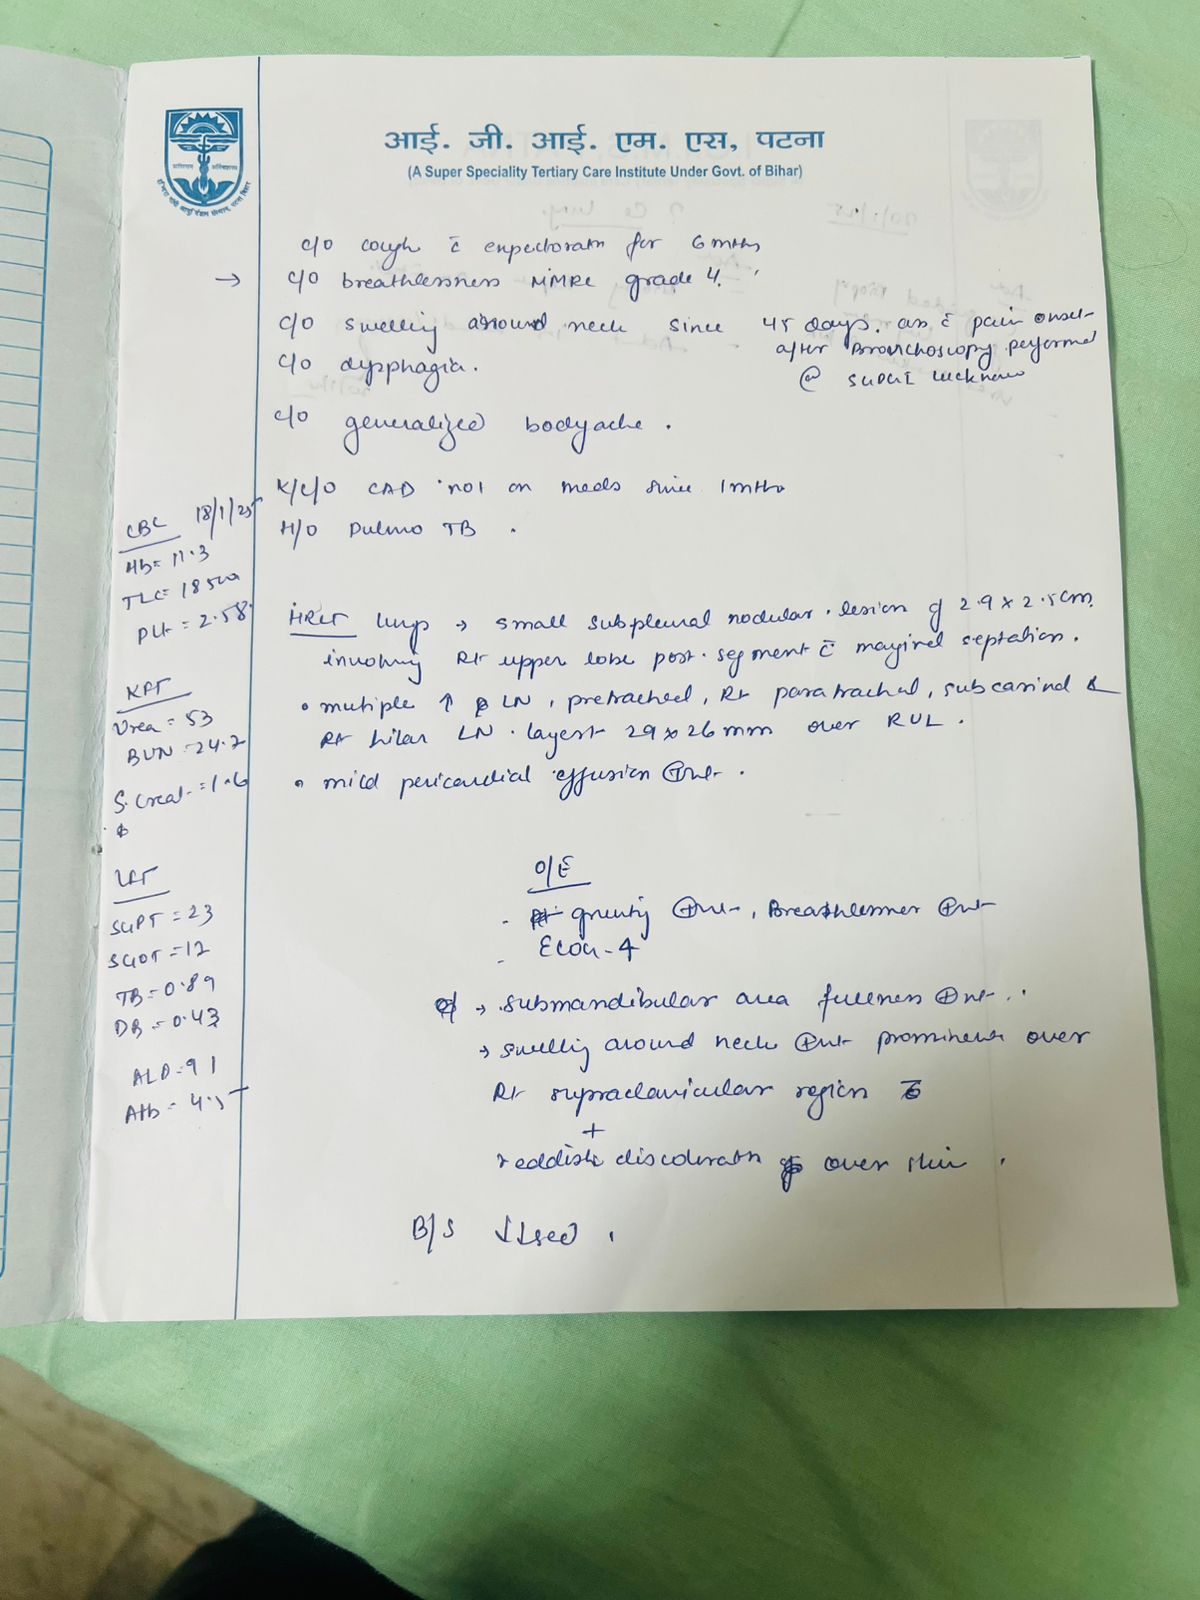 आई. जी. आई. एम. एस, पटना
(A Super Speciality Tertiary Care Institute Under Govt. of Bihar)
c/o cough c̄ expectoratn for 6 mths
→ c/o breathlessness MMRC grade 4.
c/o swelling around neck since 45 days. as c̄ pain onset
after Bronchoscopy performed
@ SGPGI Lucknow
c/o dysphagia.
c/o generalized bodyache.
K/C/O CAD not on meds since 1 mth
H/O Pulmo TB.
CBC 18/1/25
Hb = 11.3
TLC = 18500
Plt = 2.58
KFT
Urea = 53
BUN = 24.7
S. Creat. = 1.6
LFT
SGPT = 23
SGOT = 12
TB = 0.89
DB = 0.43
ALP = 91
Alb = 4.5
HRCT lungs → small subpleural nodular lesion of 2.9 x 2.5cm
involving Rt upper lobe post. segment c̄ marginal septation.
• multiple ↑ LN, pretracheal, Rt paratracheal, subcarinal &
Rt hilar LN. largest 29 x 26 mm over RUL.
• mild pericardial effusion ⊕nt.
O/E
- ⊕nt, Breathlessness ⊕nt
- ECOG - 4
→ submandibular area fullness ⊕nt.
→ swelling around neck ⊕nt prominent over
Rt supraclavicular region
+
reddish discoloratn over skin.
B/S ↓↓sed.